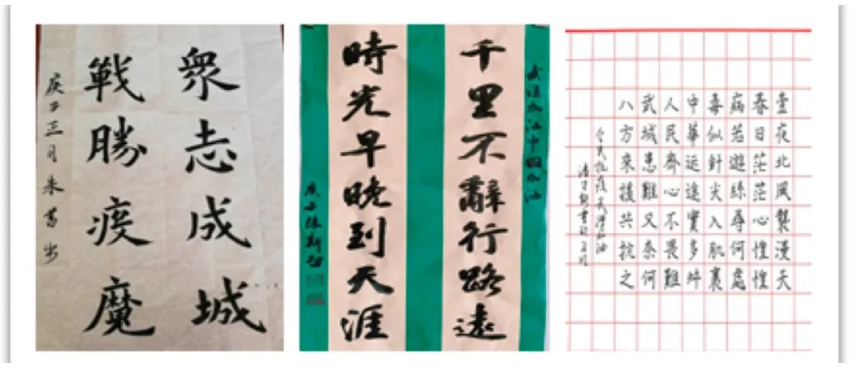 衆志成城
戰勝疫魔
庚子正月朱
武漢加油中國加油
千里不辭行路遠
時光早晚到天涯
庚子張新
壹夜北風漫天
春日茫茫心惶惶
病若遊絲尋何處
毒似針尖入肌裏
中華运途實多舛
人民齊心不畏難
武城患難又奈何
八方來援共抗之
全民抗疫武漢加油